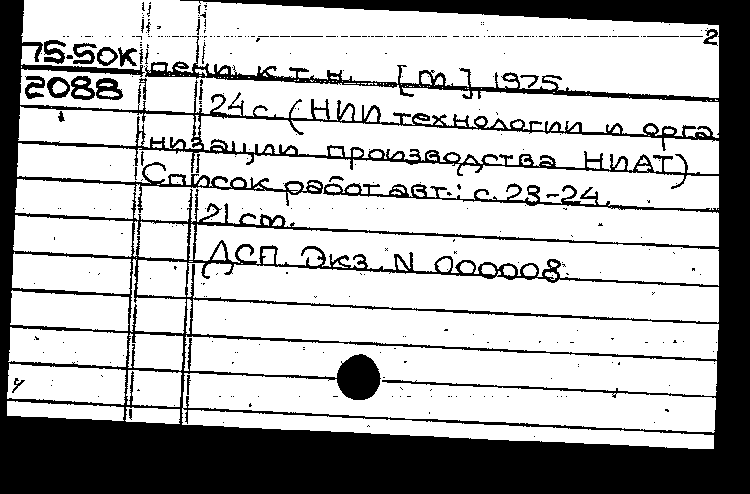 2
75-50К
2088
пени к.т.н. [М.], 1975.
24 с. (НИИ технологии и орга
низации производства НИАТ).
Список работ авт.: с. 23-24.
21 см.
ДСП. Экз. N 000008.